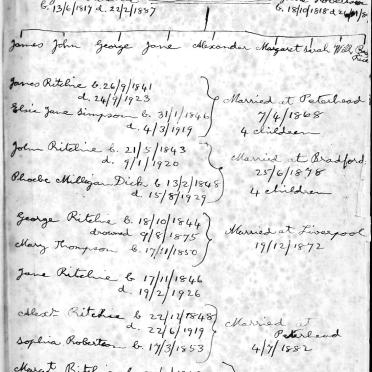 b. 13/6/1817 d. 22/2/1887
b. 18/10/1818 d.
James John George Jane Alexander Margaret Sarah Will
James Ritchie b. 26/9/1841
d. 24/9/1923
Elsie Jane Simpson b. 31/1/1846
d. 4/3/1919
Married at Peterhead
7/4/1868
4 children
John Ritchie b. 21/5/1843
d. 9/1/1920
Phoebe Milligan Dick b. 13/2/1848
d. 15/8/1929
Married at Bradford
25/6/1878
4 children
George Ritchie b. 18/10/1844
drowned 9/8/1875
Mary Thompson b. 17/11/1850
Married at Liverpool
19/12/1872
Jane Ritchie b. 17/11/1846
d. 19/2/1926
Alexr Ritchie b. 22/12/1848
d. 22/6/1919
Sophia Robertson b. 17/3/1853
Married at
Peterhead
4/7/1882